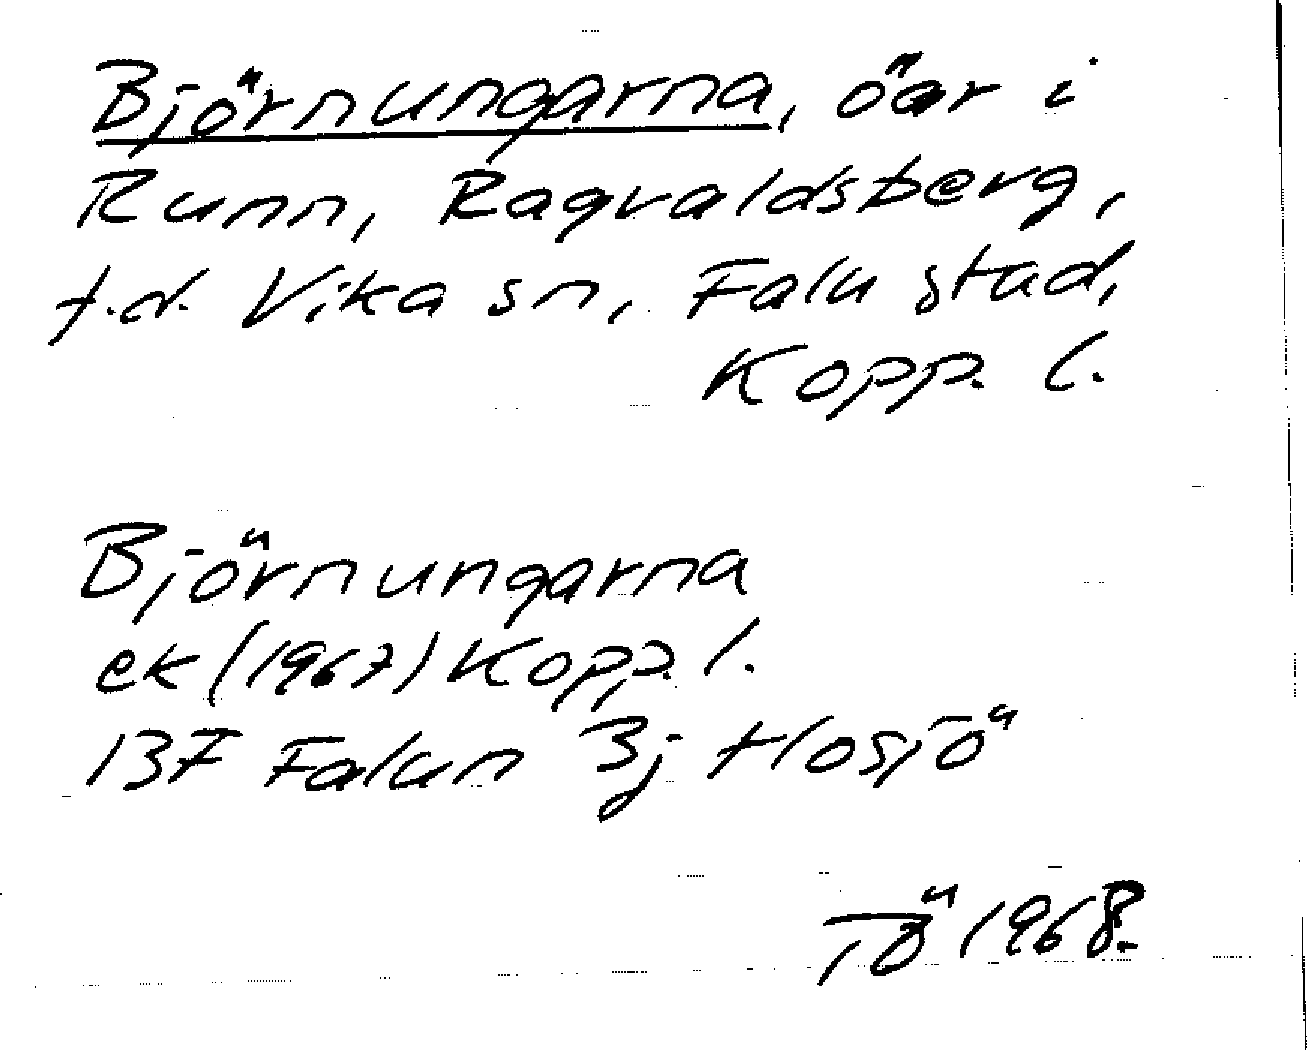 Björnungarna, öar i
Runn, Ragvaldsberg,
f.d. Vika sn, Falu stad,
Kopp. l.
Björnungarna
ek (1967) Kopp. l.
13F Falun 3j Hosjö
TÖ 1968.